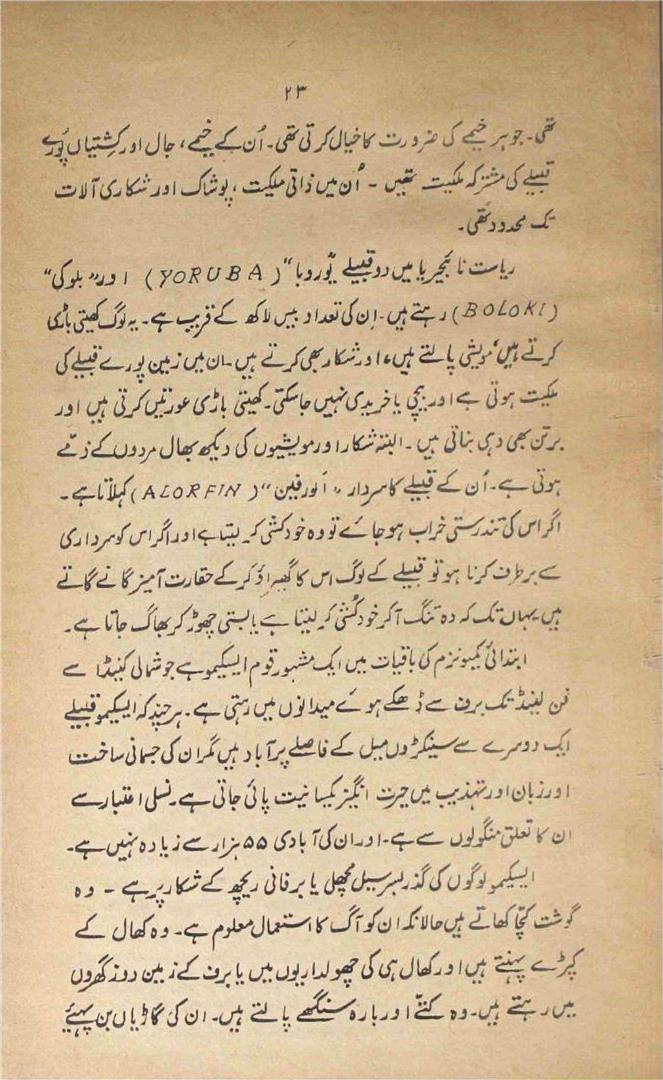 ۲۳
تھی۔ جو ہر خیمے کی ضرورت کا خیال کرتی تھی۔ اُن کے خیمے، جال اور کشتیاں پُورے
قبیلے کی مشترکہ ملکیت تھیں ۔ اُن میں ذاتی ملکیت، پوشاک اور شکاری آلات
تک محدود تھی۔
ریاست نائجیریا میں دو قبیلے یوروبا“ (YORUBA) اور ”بلوکی“
(BOLOKI) رہتے ہیں۔ اِن کی تعداد بیس لاکھ کے قریب ہے۔ یہ لوگ کھیتی باڑی
کرتے ہیں، مویشی پالتے ہیں، اور شکار بھی کرتے ہیں۔ ان میں زمین پورے قبیلے کی
ملکیت ہوتی ہے اور بیچی یا خریدی نہیں جا سکتی۔ کھیتی باڑی عورتیں کرتی ہیں اور
برتن بھی وہی بناتی ہیں ۔ البتہ شکار اور مویشیوں کی دیکھ بھال مردوں کے ذمّے
ہوتی ہے۔ اُن کے قبیلے کا سردار ” الورفین“ (ALORFIN) کہلاتا ہے۔
اگر اس کی تندرستی خراب ہو جائے تو وہ خودکشی کر لیتا ہے اور اگر اس کو سرداری
سے برطرف کرنا ہو تو قبیلے کے لوگ اس کا گھیراؤ کر کے حقارت آمیز گانے گاتے
ہیں یہاں تک کہ وہ تنگ آ کر خودکُشی کر لیتا ہے یا بستی چھوڑ کر بھاگ جاتا ہے۔
ابتدائی کمیونزم کی باقیات میں ایک مشہور قوم ایسکیمو ہے جو شمالی کنیڈا سے
فن لینڈ تک برف سے ڈھکے ہوئے میدانوں میں رہتی ہے۔ ہر چند کہ ایسکیمو قبیلے
ایک دوسرے سے سینکڑوں میل کے فاصلے پر آباد ہیں مگر ان کی جسمانی ساخت
اور زبان اور تہذیب میں حیرت انگیز یکسانیت پائی جاتی ہے۔ نسلی اعتبار سے
ان کا تعلق منگولوں سے ہے۔ اور ان کی آبادی ۵۵ ہزار سے زیادہ نہیں ہے۔
ایسکیمو لوگوں کی گذر بسر سیل مچھلی یا برفانی ریچھ کے شکار پر ہے ۔ وہ
گوشت کچّا کھاتے ہیں حالانکہ ان کو آگ کا استعمال معلوم ہے۔ وہ کھال کے
کپڑے پہنتے ہیں اور کھال ہی کی چھولداریوں میں یا برف کے زمین دوز گھروں
میں رہتے ہیں۔ وہ کتّے اور بارہ سنگھے پالتے ہیں۔ ان کی گاڑیاں بن پہیئے